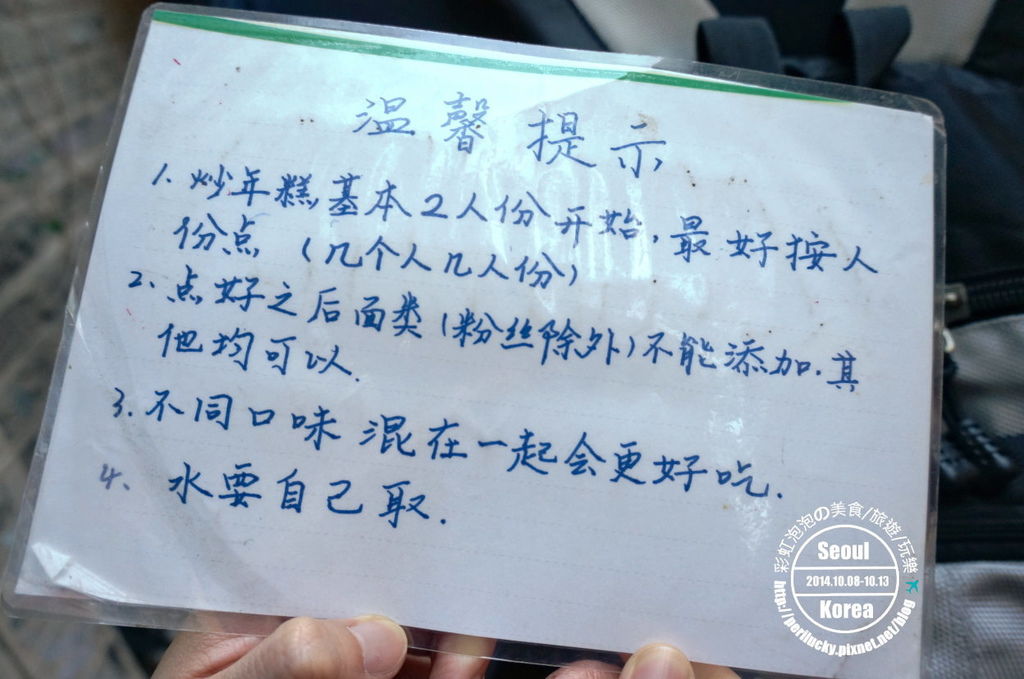 温馨提示
1. 炒年糕,基本2人份开始,最好按人
份点 (几个人几人份)
2. 点好之后面类(粉丝除外)不能添加.其
他均可以.
3. 不同口味 混在一起会更好吃.
4、水要自己取.
彩虹泡泡の美食/旅遊/玩樂
Seoul
2014.10.08-10.13
Korea
http://perilucky.pixnet.net/blog